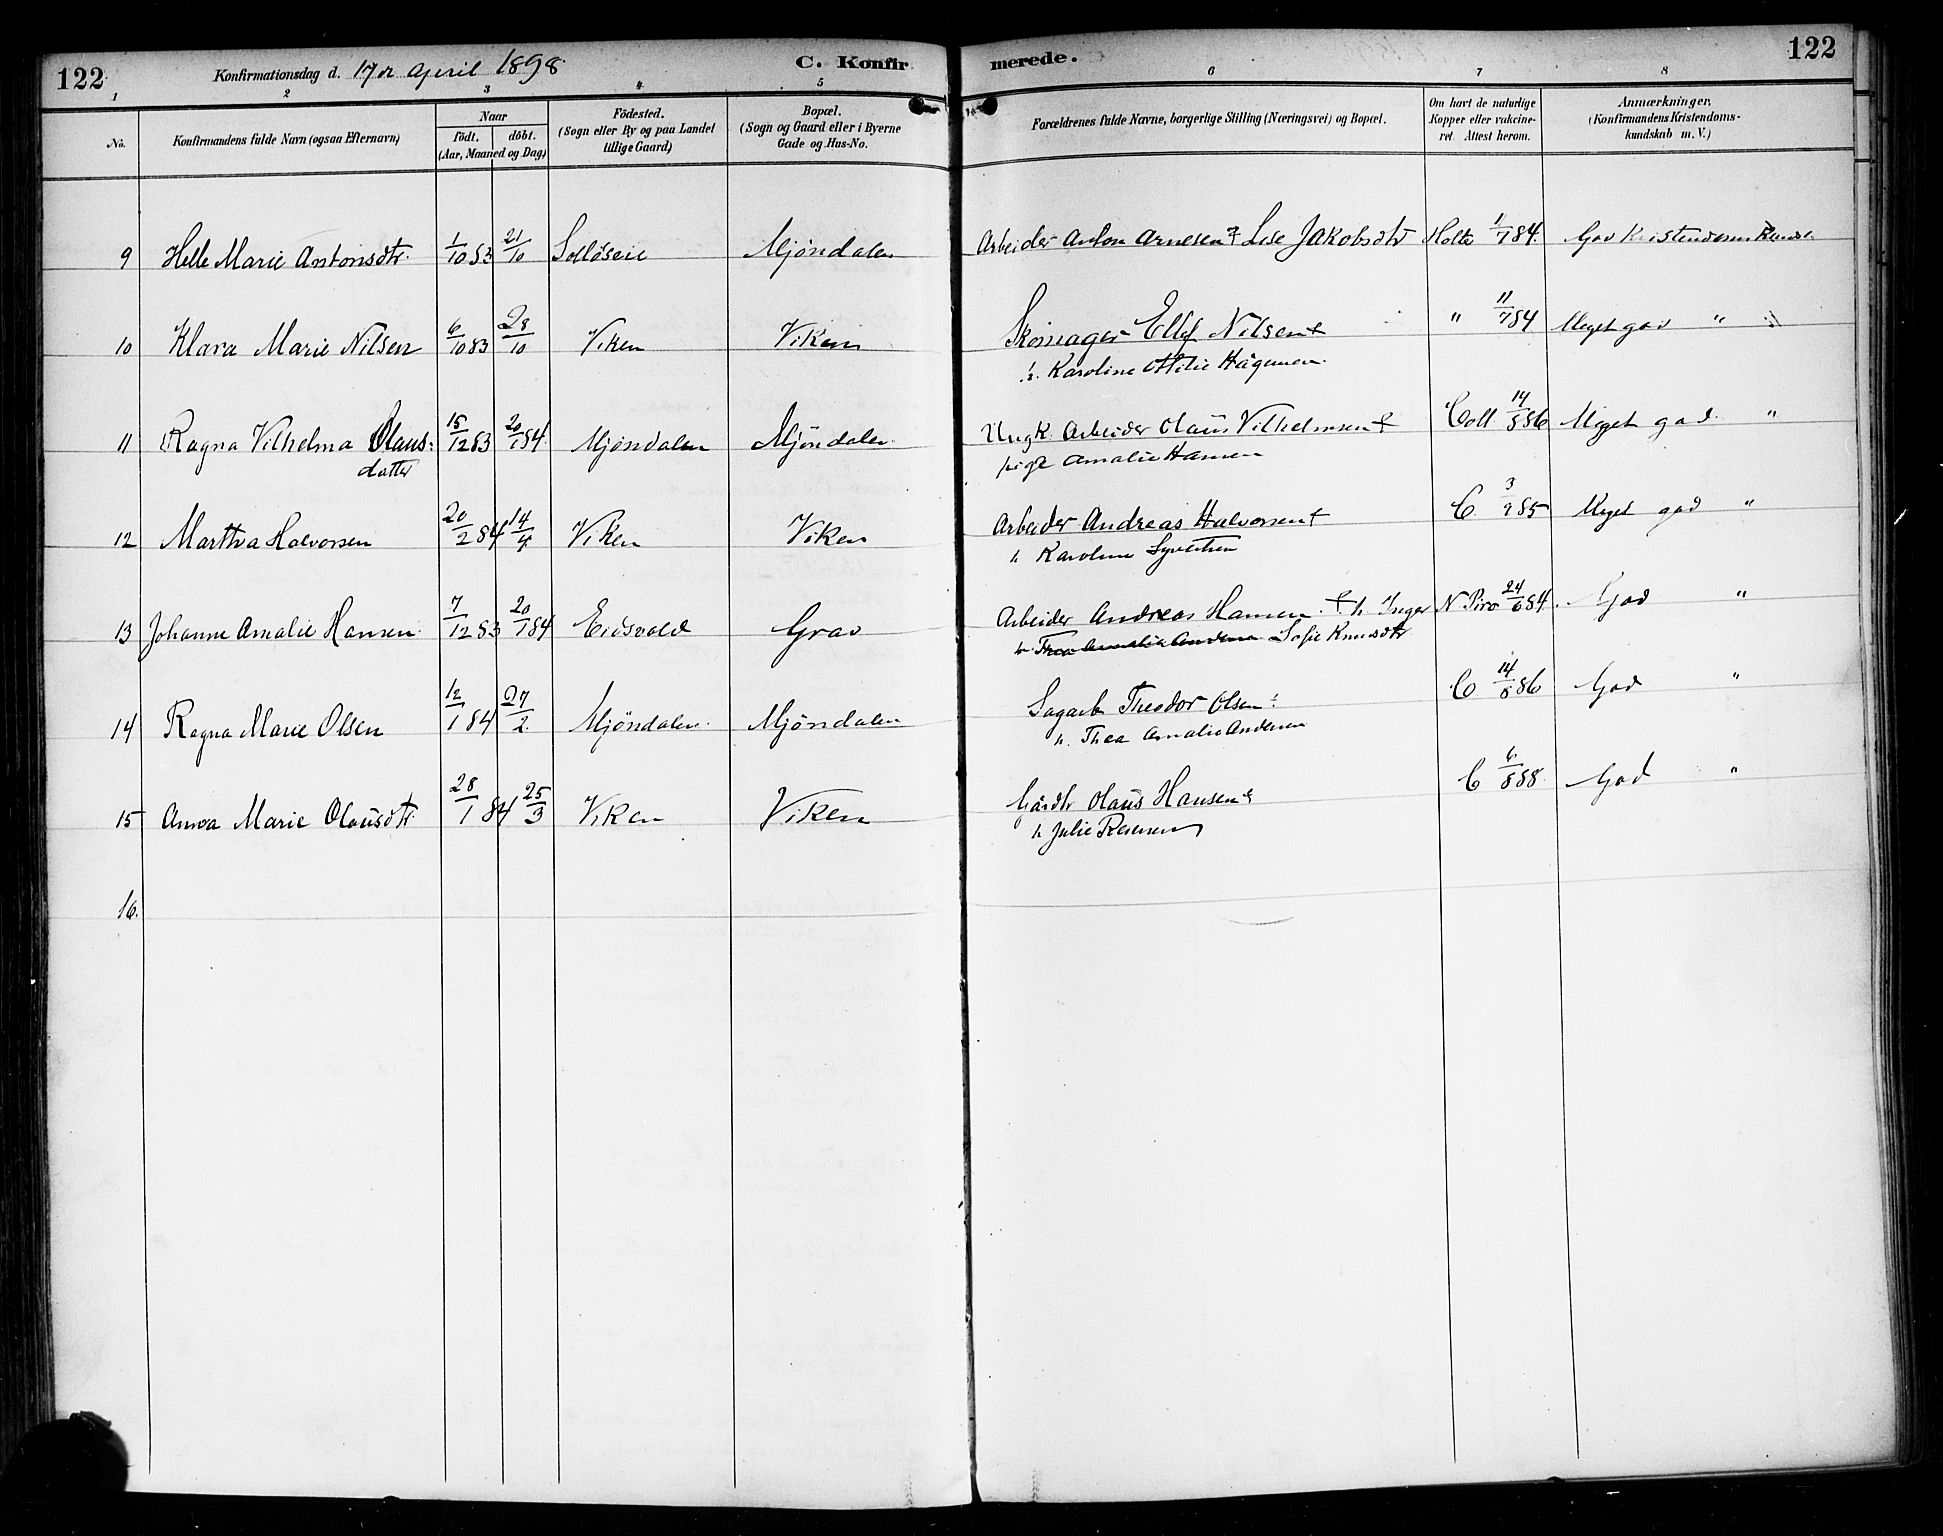 122
Konfirmationsdag d. 17de April 1898
C. Konfir
merede.
122
1 2 3 4 5 6 7 8
No.
Konfirmandens fulde Navn (ogsaa Efternavn)
Naar
födt. döbt.
(Aar, Maaned og Dag)
Födested.
(Sogn eller By og paa Landet
tillige Gaard)
Bopæl.
(Sogn og Gaard eller i Byerne
Gade og Hus-No.
Forældrenes fulde Navne, borgerlige Stilling (Næringsvei) og Bopæl.
Om havt de naturlige
Kopper eller vakcine-
ret. Attest herom.
Anmærkninger.
(Konfirmandens Kristendoms-
kundskab m. V.)
9 Helle Marie Antonsdtr. 1/10 83 21/10 Mjöndalen Arbeider Anton Arnesen & Lise Jakobsdtr Holte 1/7 84. God Kristendoms Kundsk.
10 Klara Marie Nilsen 6/10 83 28/10 Viken Viken Skomager Ellef Nilsen & " 11/7 84 Meget god " "
h. Karoline Otilie Hågensen
11 Ragna Vilhelma Olaus- 15/12 83 20/1 84. Mjöndalen Mjöndalen Ungk. Arbeider Olaus Vilhelmsen & Coll 14/8 86 Meget god "
datter pige Amalie Hansen
12 Martha Halvorsen 20/2 84 14/4 Viken Viken Arbeider Andreas Halvorsen & C. 3/9 85 Meget god "
h Karoline
13 Johanne Amalie Hansen 7/12 83 20/1 84 Eidsvold Grav Arbeider Andreas Hansen & h Inger N Piro 24/6 84. God "
h. Thea Amalie Andersen Sofie Knudsdtr
14 Ragna Marie Olsen 12/1 84 27/2. Mjöndalen Mjöndalen Sagarb Theodor Olsen & C 14/8 86 God "
h. Thea Amalie Andersen
15 Anna Marie Olausdtr. 28/1 84 25/3 Viken Viken Gårdbr Olaus Hansen & C 6/8 88 God "
h Julie
16.